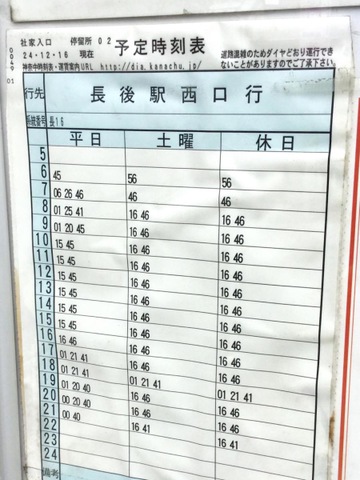 社家入口 停留所 02 予定時刻表
24・12・16 現在
神奈中時刻表・運賃案内URL http://dia.kanachu.jp/
道路混雑のためダイヤどおり運行でき
ないことがありますのでご了承下さい。
0049 01
行先 長後駅西口行
系統番号 長16
平日 土曜 休日
5
6 45 56 56
7 06 26 46 46 46
8 01 25 41 16 46 16 46
9 01 20 45 16 46 16 46
10 15 45 16 46 16 46
11 15 45 16 46 16 46
12 15 45 16 46 16 46
13 15 45 16 46 16 46
14 15 45 16 46 16 46
15 15 45 16 46 16 46
16 16 46 16 46 16 46
17 01 21 41 16 46 16 46
18 01 21 41 01 21 41 01 21 41
19 01 20 40 16 46 16 46
20 00 20 40 16 46 16 46
21 00 40 16 41 16 41
22
23
24
備考